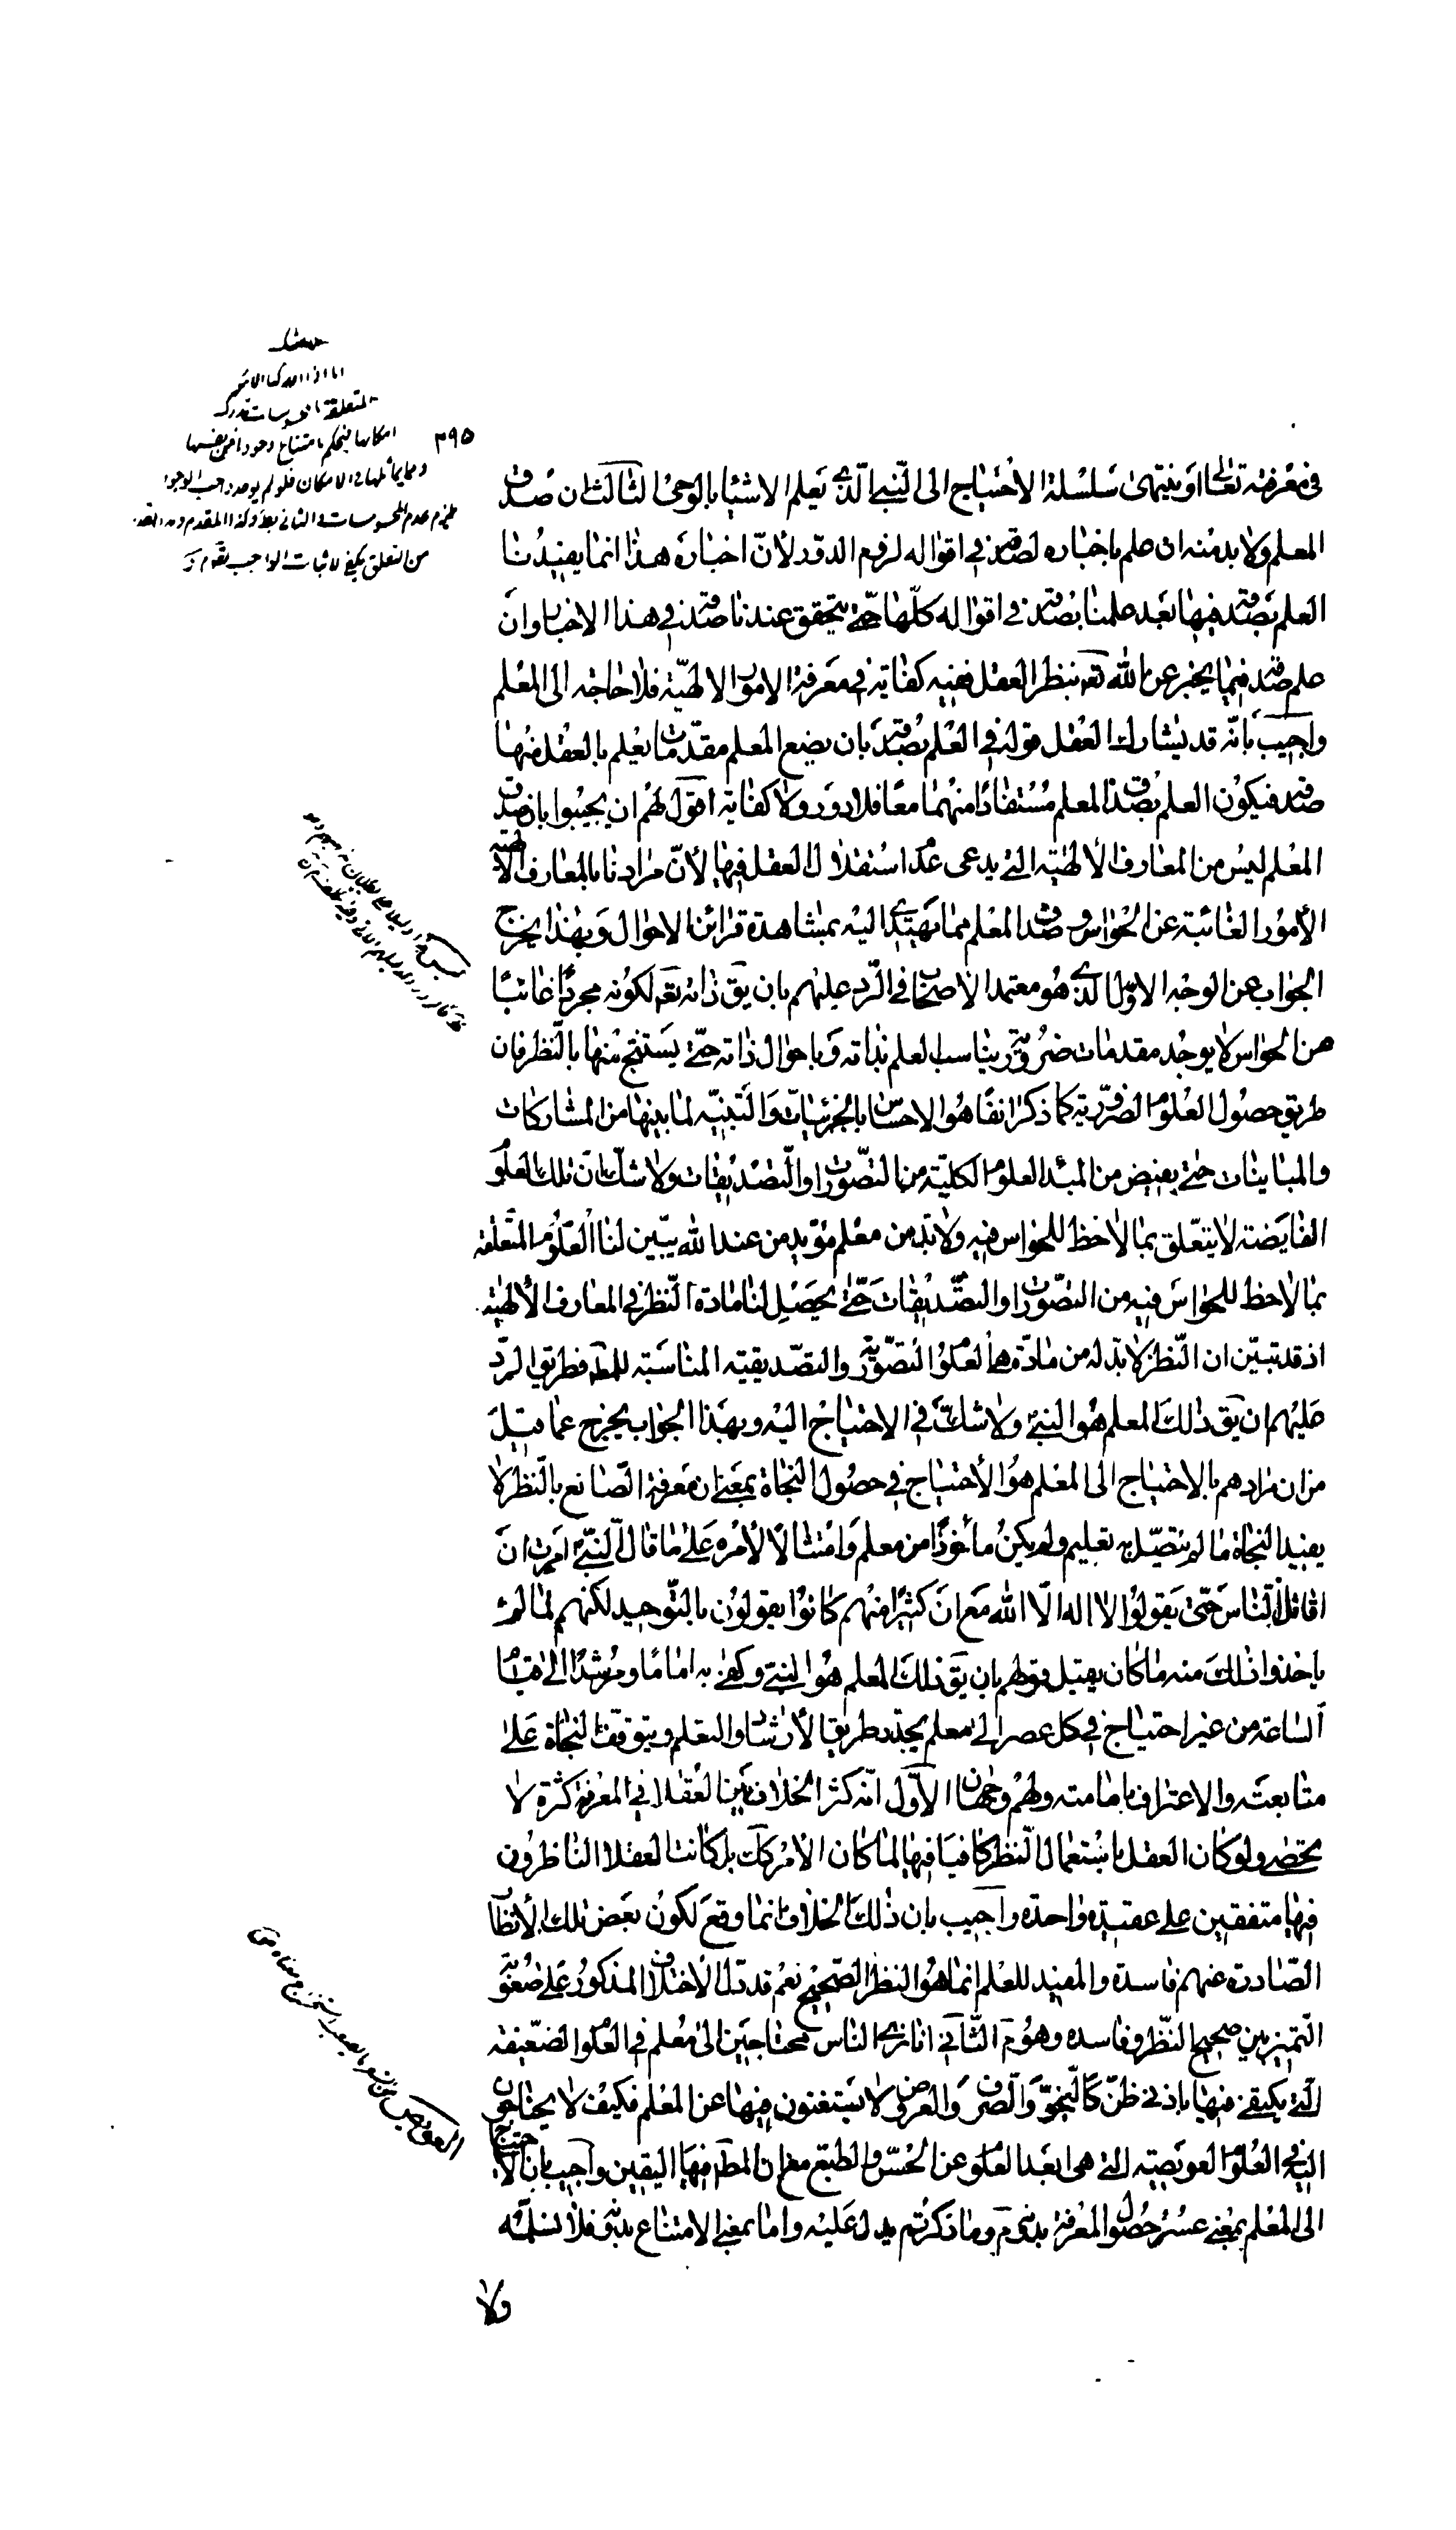 ٣٩٥
في معرفته تعالى او ينتهى سلسلة الاحتياج الى النبي الذي يعلم الاشياء بالوحى الثالث ان صدق
المعلم ولا بد منه ان علم باخباره لصدقه في اقواله لزم الدور لأن اخباره هذا انما يفيدنا
العلم بصدقه فيها بعد علمنا بصدقه في اقواله كلها حتى يتحقق عندنا صدقه في هذا الاخبار وان
علم صدقه فيما يخبر عن الله تعه بنظر العقل ففيه كفاية في معرفة الامور الالهية فلا حاجة الى المعلم
واجيب بانه قد يشارك العقل قوله في العلم بصدقه بان يضع المعلم مقدمات يعلم بالعقل منها
صدقه فيكون العلم بصدق المعلم مستفادا منهما معا فلا دور ولا كفاية اقول لهم ان يجيبوا بان صدق
المعلم ليس من المعارف الألهية التي يدعى عدم استقلال العقل فيها لأن مرادنا بالمعارف الالهية
الأمور الغائبة عن الحواس وصدق المعلم مما يهتدى اليه بمشاهدة قرائن الاحوال وبهذا يخرج
الجواب عن الوجه الاول الذي هو معتمد الاصحاب في الرد عليهم بان يق ذاته تعه لكونه مجردا غائبا
عن الحواس لا يوجد مقدمات ضرورية يناسب العلم بذاته وباحوال ذاته حتى يستنتج منها بالنظر فان
طريق حصول العلوم الضرورية كما ذكر انفا هو الاحساس بالجزئيات والتنبيه لما بينها من المشاركات
والمباينات حتى يفيض من المبدء العلوم الكلية من التصورات والتصديقات ولا شك ان تلك العلوم
الفايضة لا يتعلق بما لا حظ للحواس فيه ولا بد من معلم مؤيد من عند الله يبين لنا العلوم المتعلقة
بما لا حظ للحواس فيه من التصورات والتصديقات حتى يحصل لنا مادة النظر في المعارف الألهية
اذ قد تبين ان النظر لا بد له من مادة هي العلوم التصورية والتصديقية المناسبة للمط فطريق الرد
عليهم ان يق ذلك المعلم هو النبي ولا شك في الاحتياج اليه وبهذا الجواب يخرج عما قيل
من ان مرادهم بالاحتياج الى المعلم هو الأحتياج في حصول النجاة بمعنى ان معرفة الصانع بالنظر لا
يفيد النجاة ما لم يتصل به تعليم ولم يكن مأخوذا من معلم وامتثالا لأمره على ما قال النبي امرت ان
اقاتل الناس حتى يقولوا لا اله الا الله مع ان كثيرا منهم كانوا يقولون بالتوحيد لكنهم لما لم
ياخذوا ذلك منه ما كان يقبل قولهم بان يق ذلك المعلم هو النبي وكفى به اماما ومرشدا الى قيام
الساعة من غير احتياج في كل عصر الى معلم يجدد طريق الأرشاد والتعلم ويتوقف النجاة على
متابعته والاعتراف بامامته ولهم وجهان الأول انه كثر الخلاف بين العقلاء في المعرفة كثرة لا
تحصى ولو كان العقل باستعمال النظر كافيا فيها لما كان الأمر كك بل كانت العقلاء الناظرون
فيها متفقين على عقيدة واحدة واجيب بان ذلك الخلاف انما وقع لكون بعض تلك الأنظار
الصادرة عنهم فاسدة والمفيد للعلم انما هو النظر الصحيح نعم قد تدل الأختلاف المذكور على صعوبة
التميز بين صحيح النظر وفاسده وهو م الثاني انا نرى الناس محتاجين الى معلم في العلوم الضعيفة
التي يكتفى فيها بادنى ظن كالنحو والصرف والعروض لا يستغنون فيها عن المعلم فكيف لا يحتاجون
اليه في العلوم العويصة التي هي ابعد العلوم عن الحس والطبع مع ان المط فيها اليقين واجيب بان الاحتياج
الى المعلم بمعنى عسر حصول المعرفة بدونه م وما ذكرتم يدل عليه واما بمعنى الامتناع بدونه فلا نسلمه
ولا
المتعلقة بالمحسوسات
طيزم عدم المحسوسات
من التعلق يكفي لاثبات الواجب